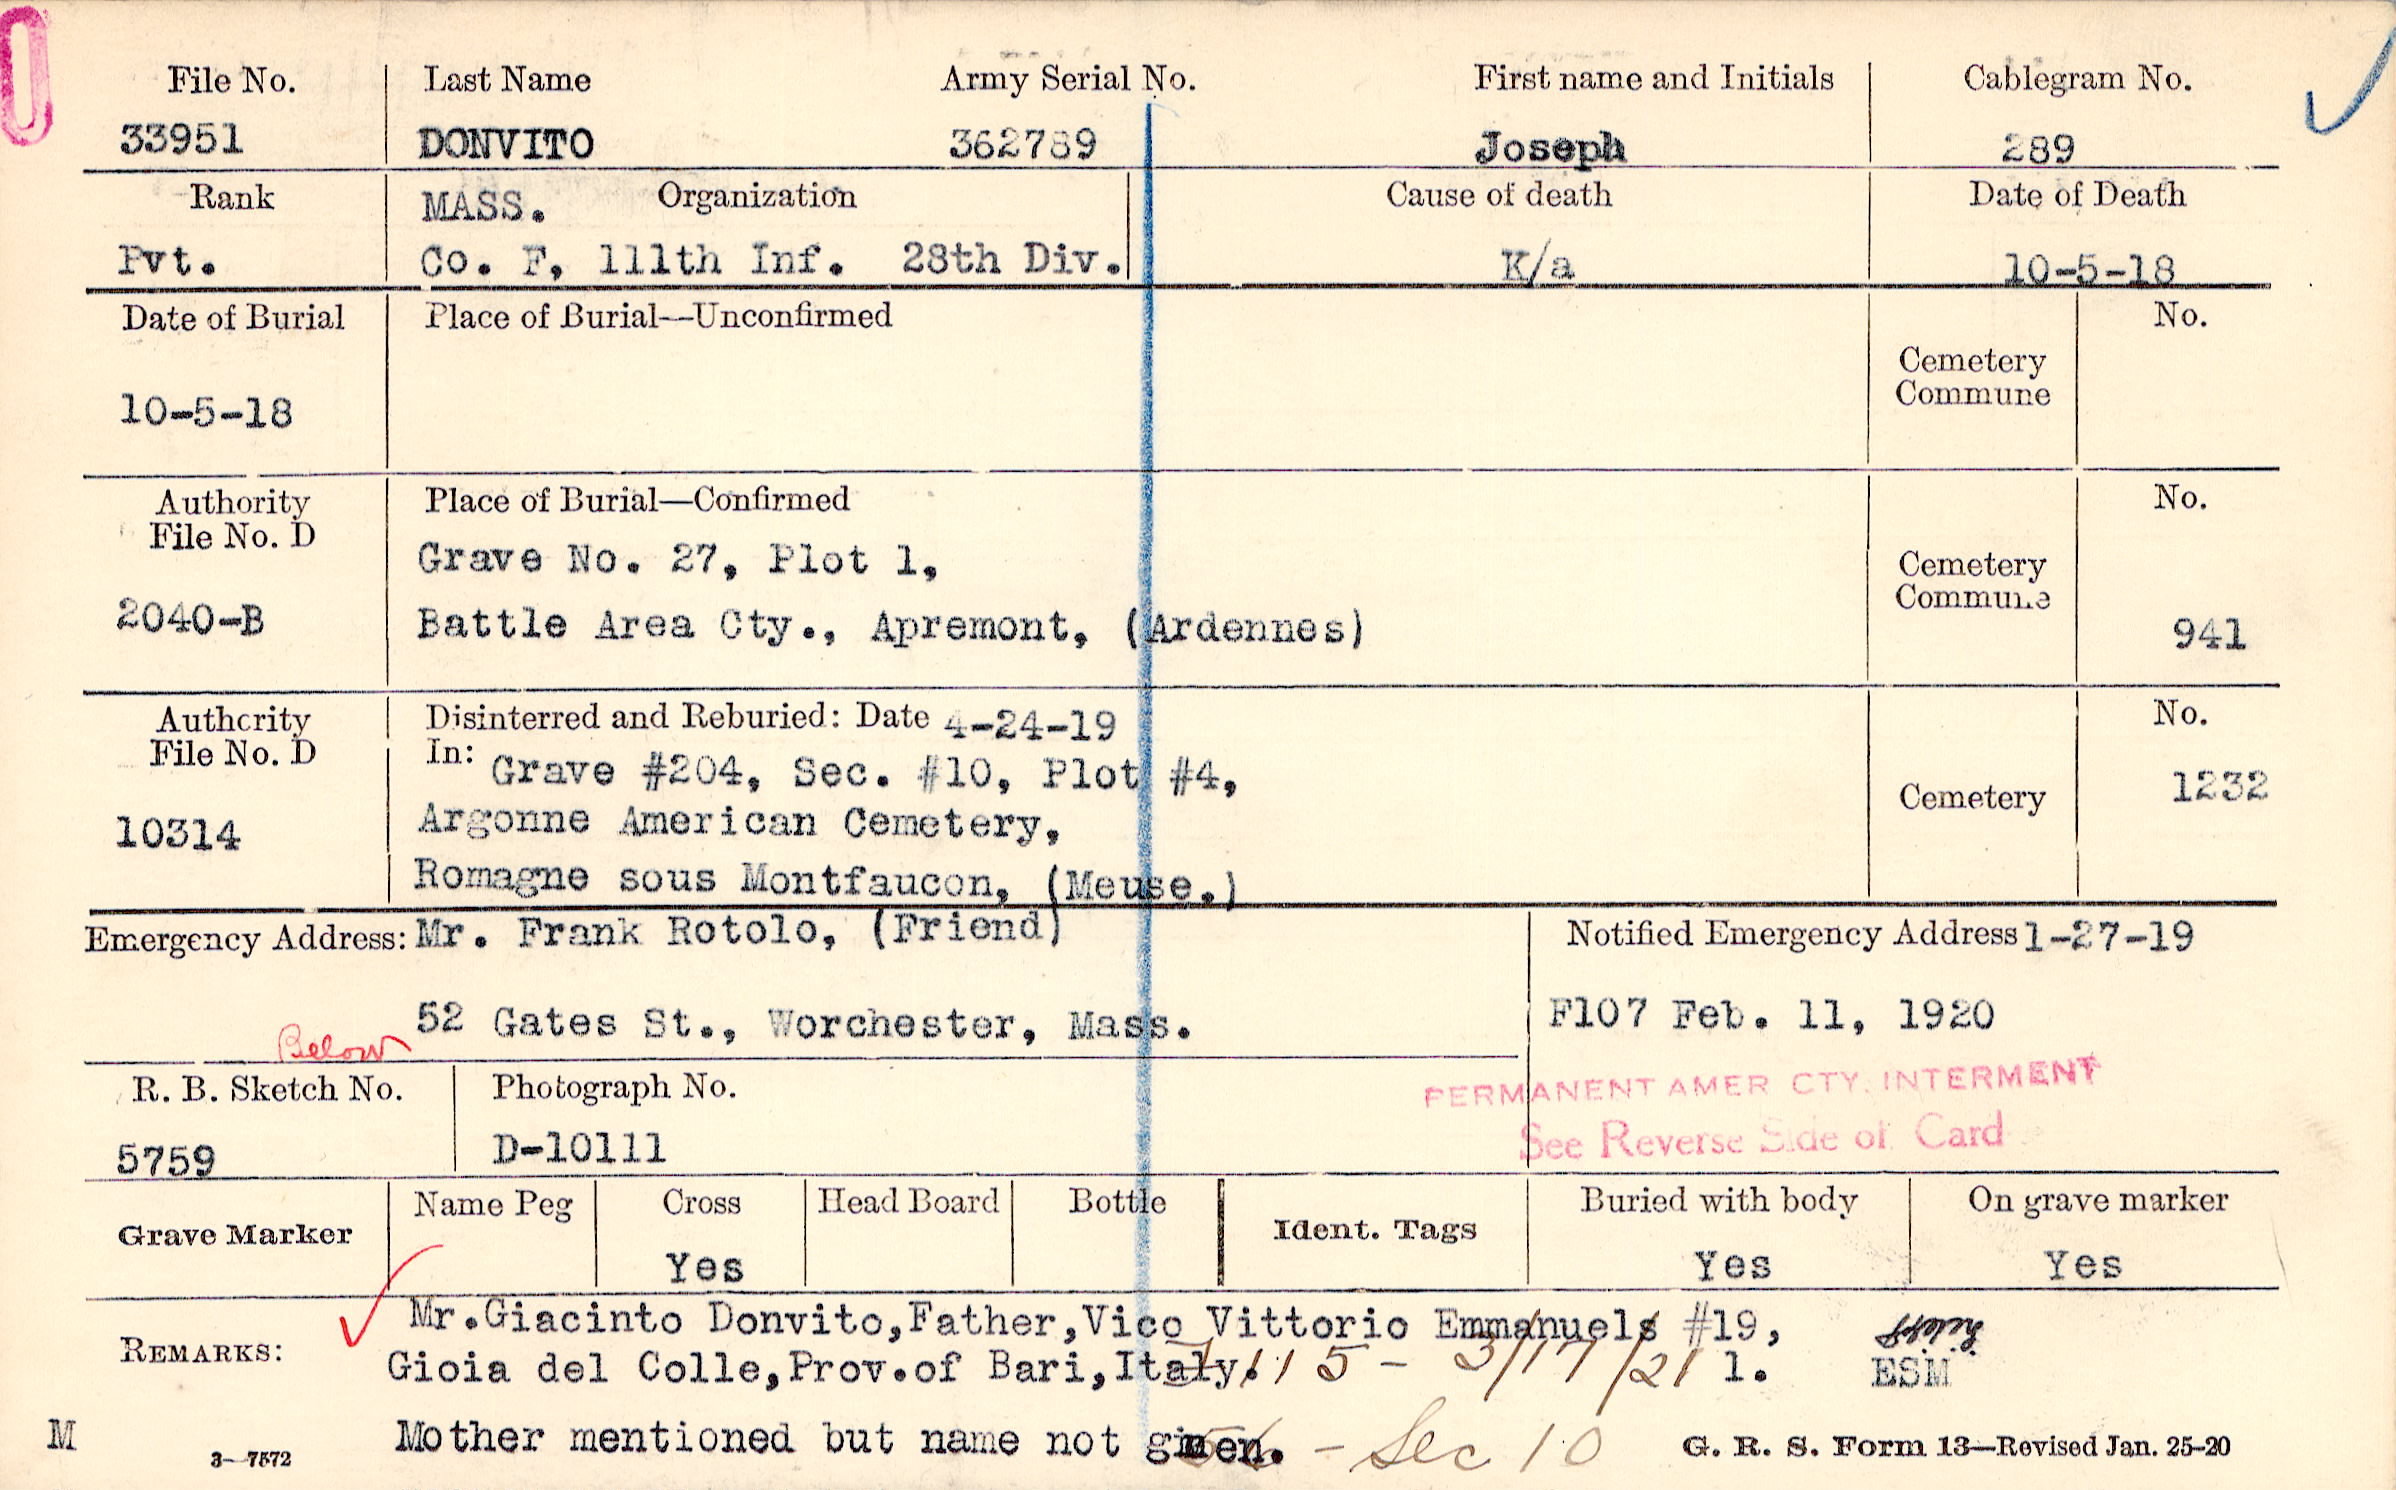 File No. Last Name Army Serial No. First name and Initials Cablegram No.
33951 DONVITO 362789 Joseph 289
Rank MASS. Organization Cause of death Date of Death
Pvt. Co. F, 111th Inf. 28th Div. K/a 10-5-18
Date of Burial Place of Burial—Unconfirmed No.
Cemetery
Commune
10-5-18
Authority Place of Burial—Confirmed No.
File No. D
Grave No. 27, Plot 1, Cemetery
Commune
2040-B Battle Area Cty., Apremont, (Ardennes) 941
Authority Disinterred and Reburied: Date 4-24-19 No.
File No. D In: Grave #204, Sec. #10, Plot #4, 1232
10314 Argonne American Cemetery, Cemetery
Romagne sous Montfaucon, (Meuse.)
Emergency Address: Mr. Frank Rotolo, (Friend) Notified Emergency Address 1-27-19
52 Gates St., Worchester, Mass. F107 Feb. 11, 1920
Below
R. B. Sketch No. Photograph No. PERMANENT AMER CTY. INTERMENT
5759 D-10111 See Reverse Side of Card
Grave Marker Name Peg Cross Head Board Bottle Ident. Tags Buried with body On grave marker
Yes Yes Yes
REMARKS: Mr.Giacinto Donvito,Father,Vico Vittorio Emmanuels #19,
Gioia del Colle,Prov.of Bari,Italy. 115 - 3/17/21 1. ESM
M 3—7572 Mother mentioned but name not ginen. - Sec 10 G. R. S. Form 13—Revised Jan. 25-20